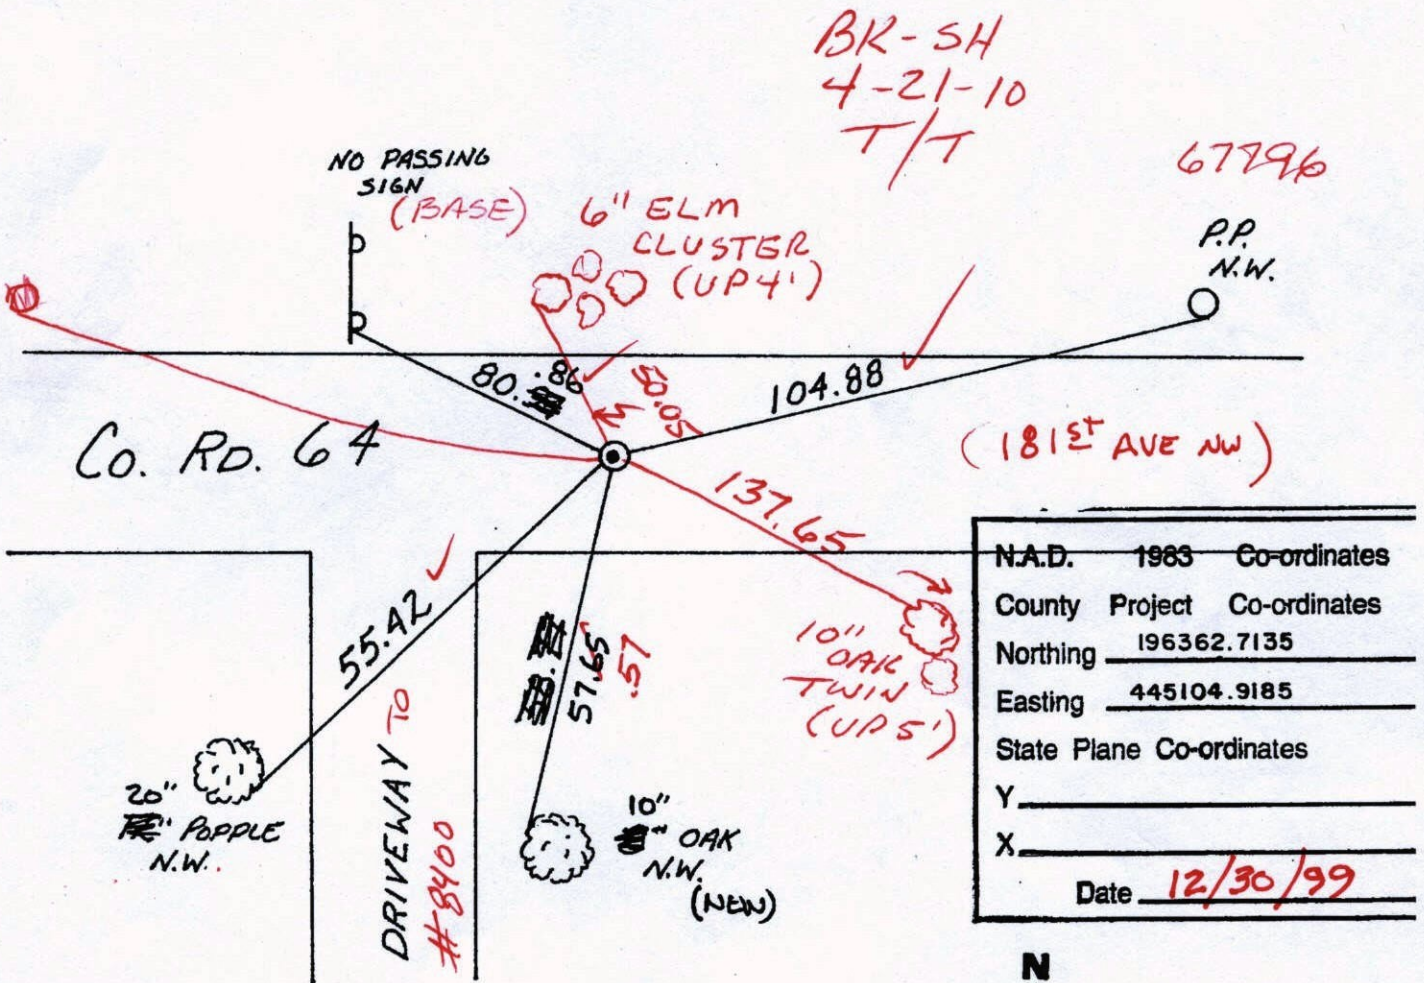 BK-SH
4-21-10
T/T
67796
NO PASSING
SIGN
(BASE)
6" ELM
CLUSTER
(UP 4')
P.P.
N.W.
80.
.86
50.05
104.88
Co. RD. 64
(181st AVE NW)
137.65
55.42
57.65
.57
10"
OAK
TWIN
(UP 5')
20"
POPPLE
N.W.
DRIVEWAY TO
#8400
10"
OAK
N.W.
(NEW)
N.A.D. 1983 Co-ordinates
County Project Co-ordinates
Northing 196362.7135
Easting 445104.9185
State Plane Co-ordinates
Y
X
Date 12/30/99
N